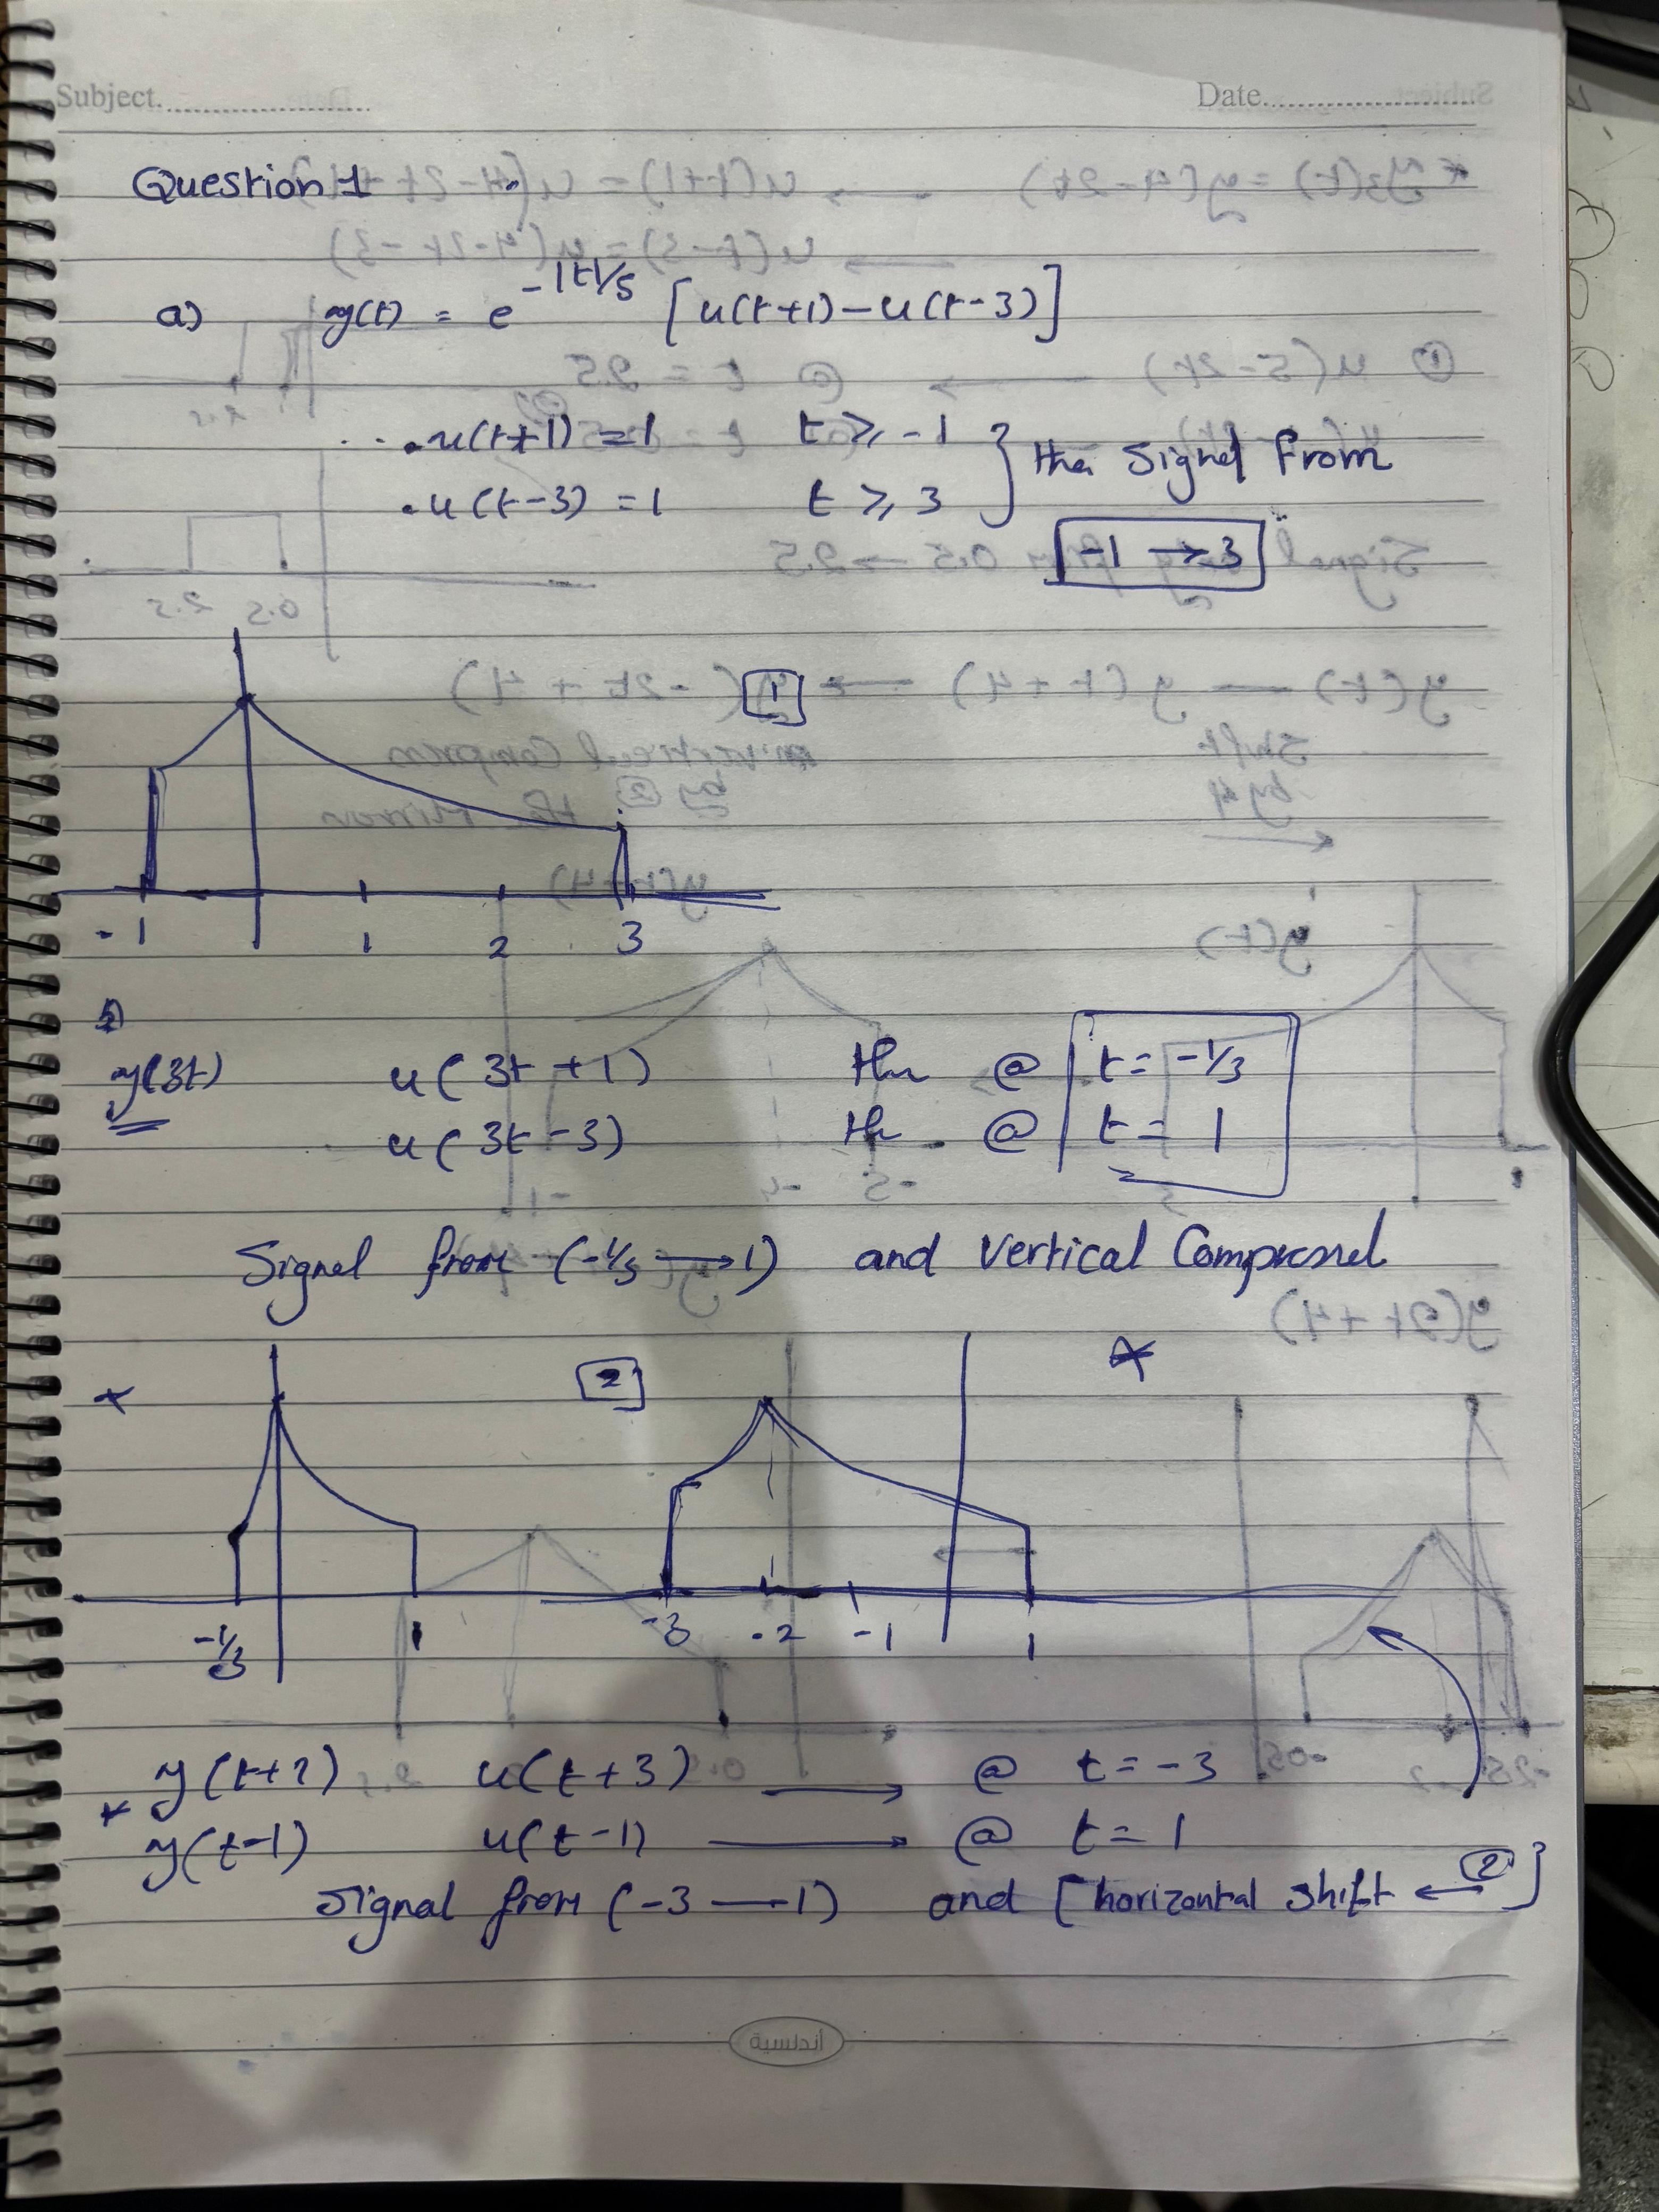 Subject. Date.
Question 1
a) y(t) = e^-|t|/5 [u(t+1)-u(t-3)]
. u(t+1) = 1 t ≥ -1 } the Signal From
. u(t-3) = 1 t ≥ 3
-1 → 3
1
-1 1 2 3
y(3t) u(3t+1) the @ t = -1/3
u(3t-3) the @ t = 1
Signal from (-1/3 → 1) and Vertical Compressed
2
-1/3 1 -3 -2 -1 1
y(t+2) u(t+3) → @ t = -3
* y(t-1) u(t-1) → @ t = 1
Signal from (-3 — 1) and [horizontal shift ← 2]
أندلسية